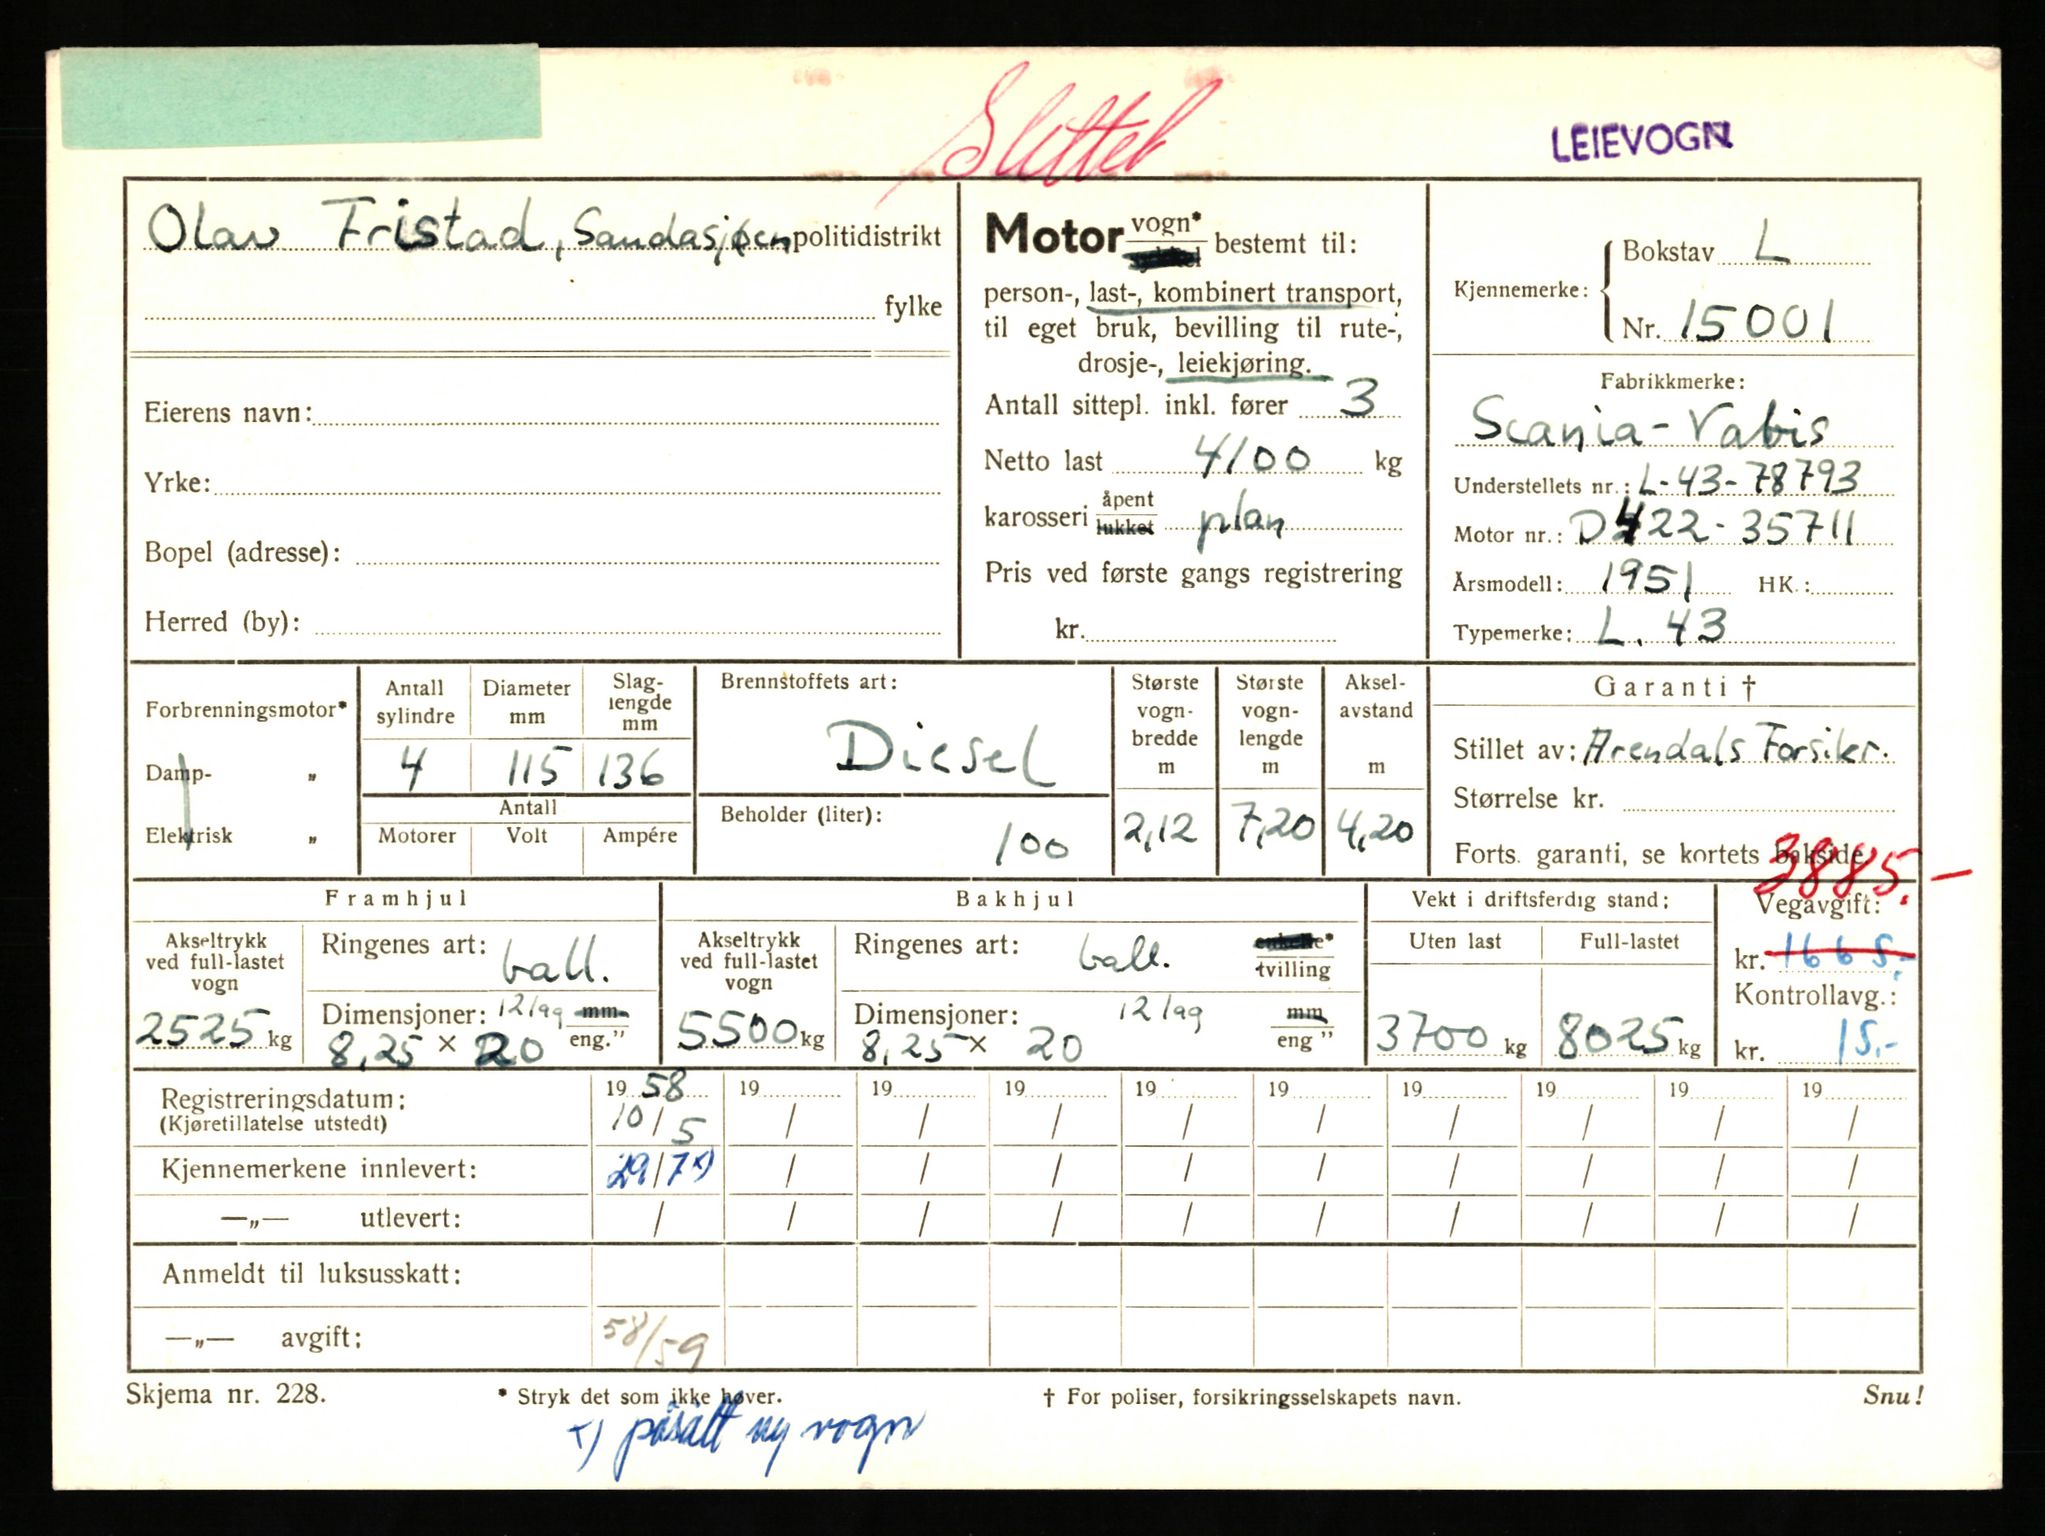 Slettet
LEIEVOGN
Olav Fristad, Sandasjøen politidistrikt
fylke
Eierens navn:
Yrke:
Bopel (adresse):
Herred (by):
Motor vogn* bestemt til:
person-, last-, kombinert transport,
til eget bruk, bevilling til rute-,
drosje-, leiekjøring.
Antall sittepl. inkl. fører 3
Netto last 4100 kg
karosseri åpent lukket plan
Pris ved første gangs registrering
kr.
Kjennemerke: Bokstav L
Nr. 15001
Fabrikkmerke:
Scania-Vabis
Understellets nr.: L-43-78793
Motor nr.: D422-35711
Årsmodell: 1951 HK.:
Typemerke: L. 43
Forbrenningsmotor*
Damp- „
Elektrisk „
Antall sylindre 4
Diameter mm 115
Slag-lengde mm 136
Antall
Motorer Volt Ampére
Brennstoffets art:
Diesel
Beholder (liter):
100
Største vogn-bredde m 2,12
Største vogn-lengde m 7,20
Aksel-avstand m 4,20
Garanti †
Stillet av: Arendals Forsikr.
Størrelse kr.
Forts. garanti, se kortets bakside.
Framhjul
Akseltrykk ved full-lastet vogn
2525 kg
Ringenes art: ball.
Dimensjoner: 12 lag mm eng."
8,25 × 20
Bakhjul
Akseltrykk ved full-lastet vogn
5500 kg
Ringenes art: ball. enkelte* tvilling
Dimensjoner: 12 lag mm eng "
8,25 × 20
Vekt i driftsferdig stand:
Uten last Full-lastet
3700 kg 8025 kg
3885.-
Vegavgift:
kr. 1665.-
Kontrollavg.:
kr. 15.-
Registreringsdatum: 19 58 19 19 19 19 19 19 19 19 19
(Kjøretillatelse utstedt) 10/5 / / / / / / / / /
Kjennemerkene innlevert: 29/7 x) / / / / / / / / /
—„— utlevert: / / / / / / / / / /
Anmeldt til luksusskatt:
—„— avgift: 58/59
Skjema nr. 228. * Stryk det som ikke høver. † For poliser, forsikringsselskapets navn. Snu!
x) påsatt ny vogn